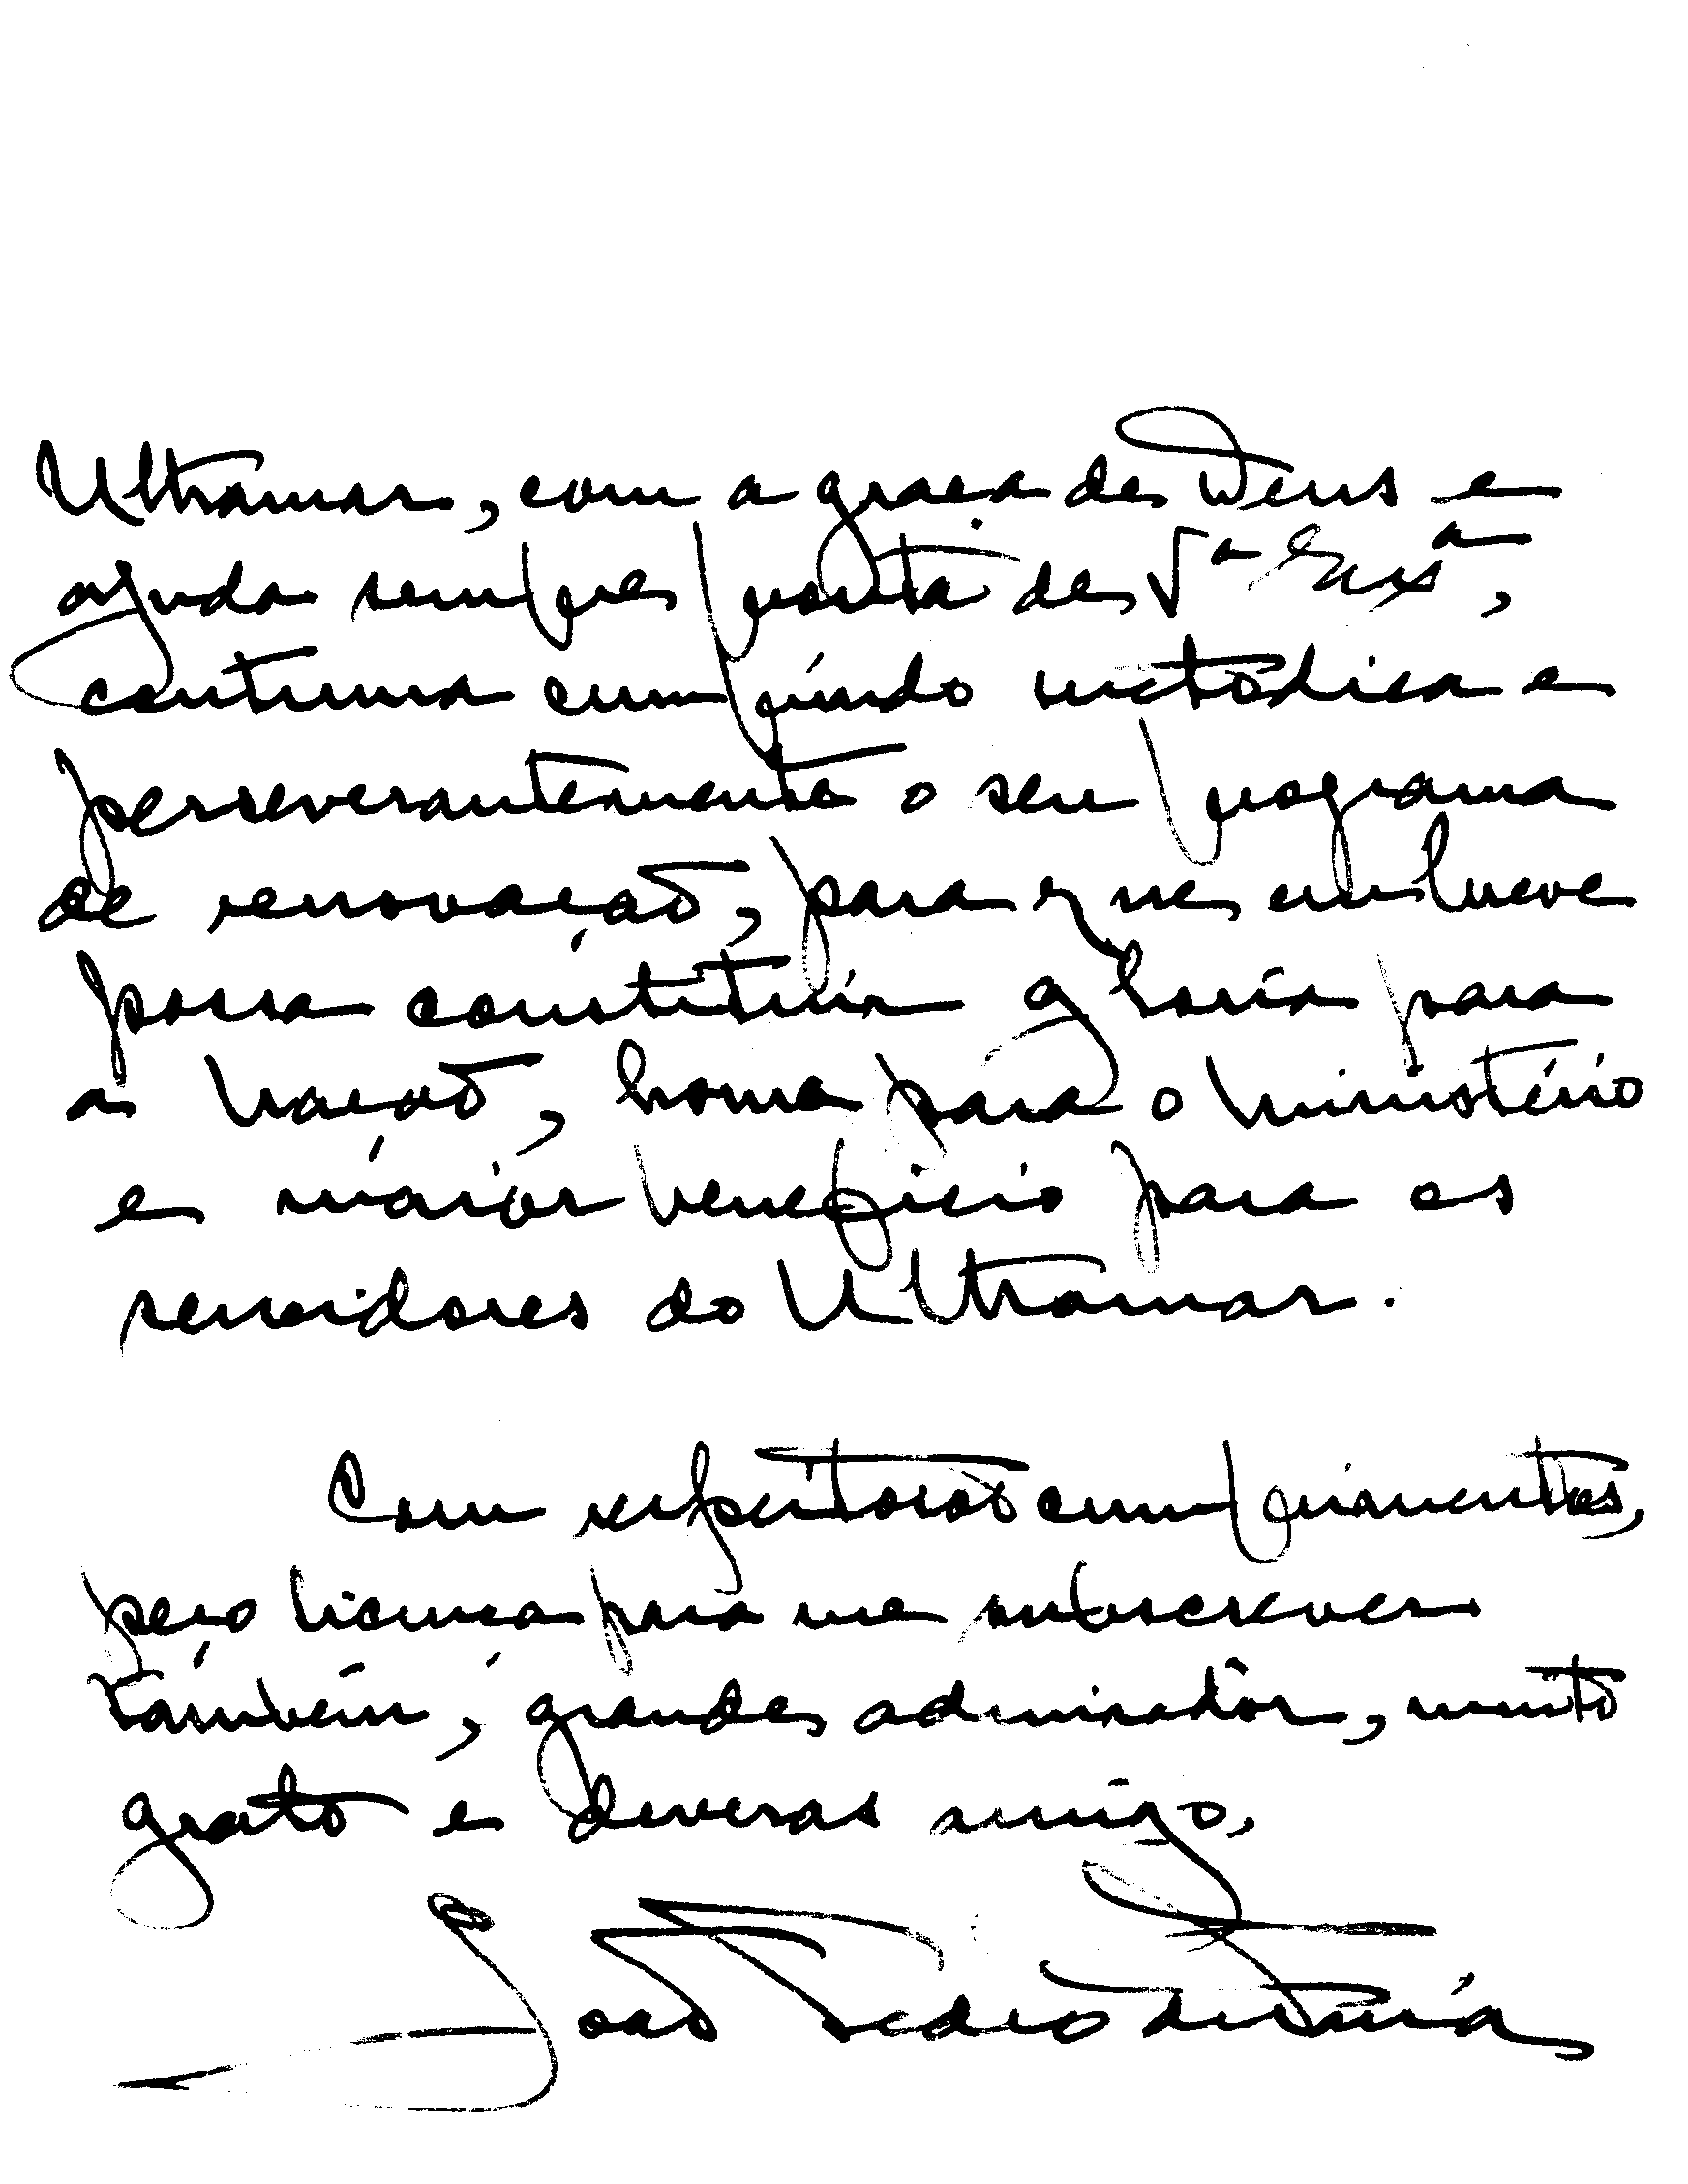 Ultramar, com a graça de Deus e
ajuda sempre pronta de Vª Exª,
continua cumprindo metódica e
perseverantemente o seu programa
de renovação, para que em breve
possa constituir glória para
a Nação, honra para o Ministério
e maior benefício para os
servidores do Ultramar.
Com respeitosos cumprimentos,
peço licença para me subscrever
também, grande admirador, muito
grato e deveras amigo,
João Pedro de